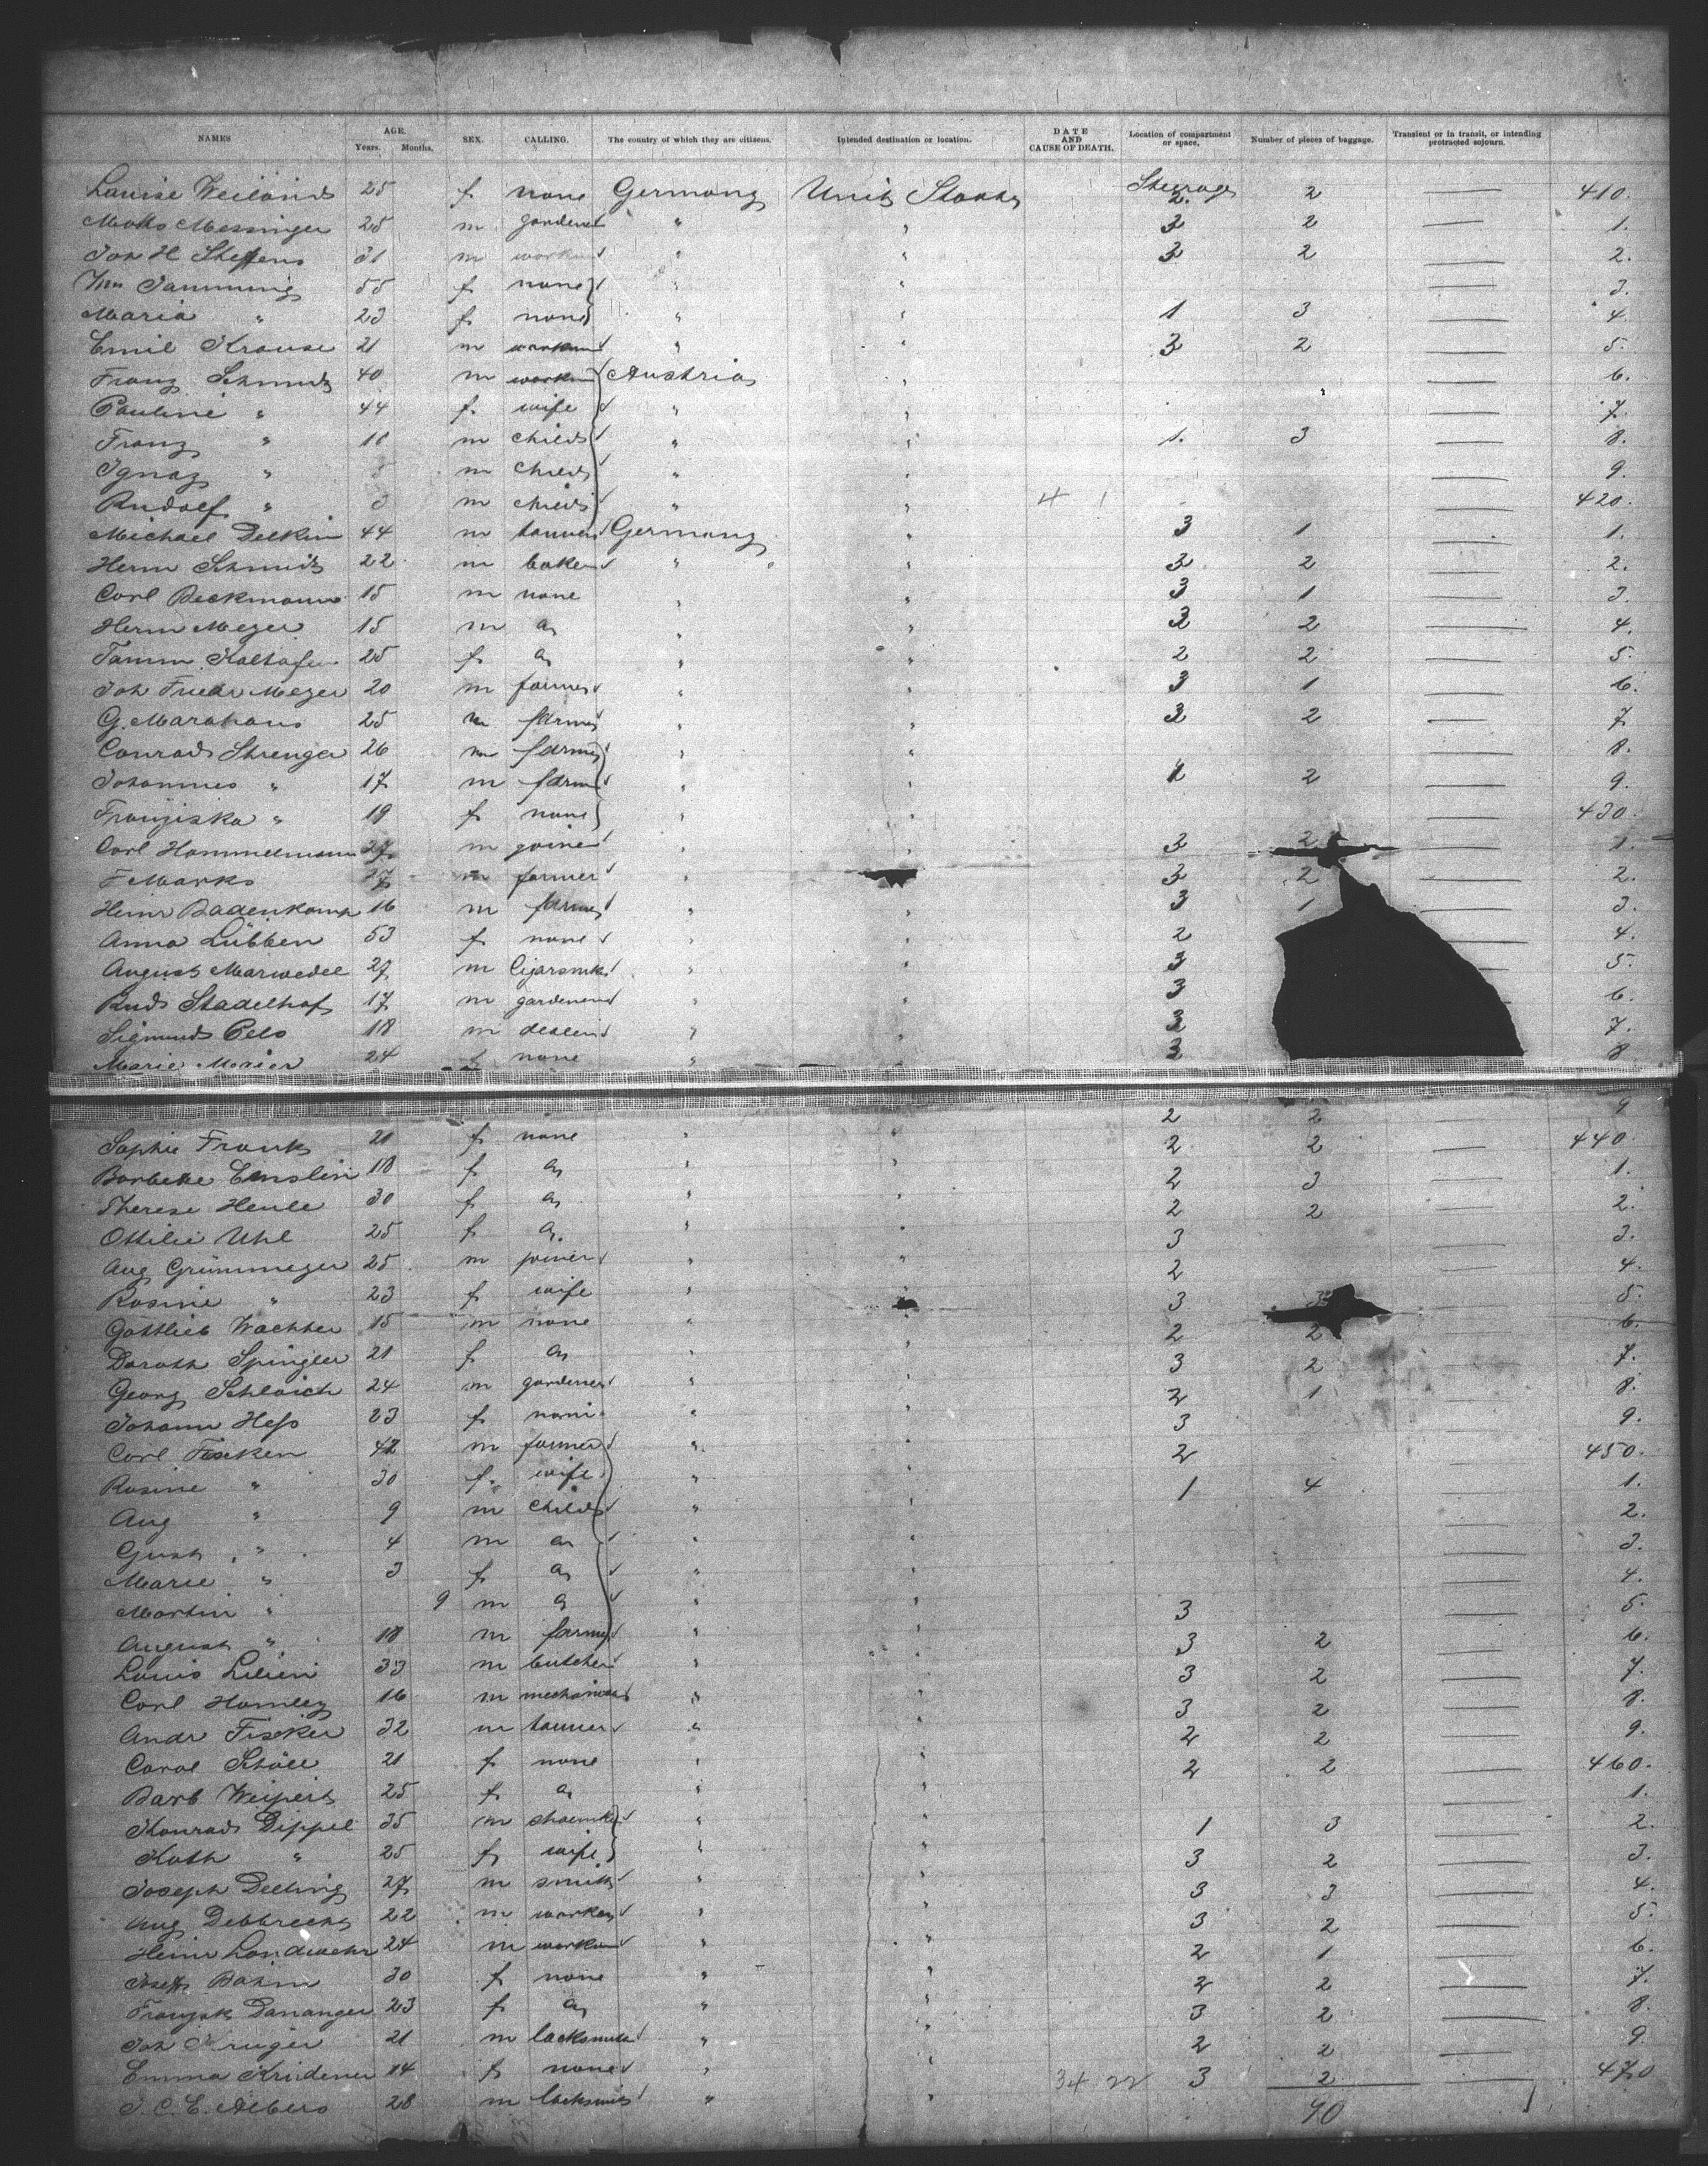 NAMES AGE. Years. Months. SEX. CALLING. The country of which they are citizens. Intended destination or location. DATE AND CAUSE OF DEATH. Location of compartment or space. Number of pieces of baggage. Transient or in transit, or intending protracted sojourn.
Louise Weiland 25 f none Germany Unit Staats Steerage 2. 2 — 410.
Messinger 25 m gardener " " 3 2 — 1.
Joh H Steffens 31 m " " 3 2 — 2.
55 f none " " — 3.
Maria " 23 f none " " 1 3 — 4.
Emil Krause 21 m " " 3 2 — 5.
Franz Schmidt 40 m Austria " — 6.
Pauline " 44 f. wife " " — 7.
Franz " m child " " 1. 3 — 8.
Ignaz " m child " " — 9.
Rudolf " m child " " 4 1 — 420.
Michael 44 m Germany " 3 1 — 1.
Herm Schmidt 22 m baker " " 3 2 — 2.
Carl Beckmann 15 m none " " 3 1 — 3.
Herm Meyer 15 m a " " 3 2 — 4.
25 f a " " 2 2 — 5.
Joh Friedr Meyer 20 m farmer " " 3 1 — 6.
G. 25 m farmer " " 3 2 — 7
Conrad Strenger 26 m farmer " " — 8.
Johannes " 17 m farmer " " 1 2 — 9.
Franziska " 19 f none " " — 430.
Carl Hammelmann 27 m joiner " " 3 2 — 1.
F Marks 17 m farmer " 3 2 — 2.
Heinr Badenkamp 16 m farmer " " 3 1 — 3.
Anna Lübben 53 f none " " 2 — 4.
August Marwedel 27 m Cigarsmk " " 3 — 5.
Rud Stadelhof 17 m gardener " " 3 6.
Sigmund 18 m " " 3 7.
Marie Maier 24 f none " 3 8
2 2 9
Sophie Frank 21 f none " " 2 2 — 440
18 f a " " 2 3 — 1.
Therese Henle 30 f a " " 2 2 — 2.
Ottilie Uhl 25 f a. " " 3 — 3.
Aug Grümmeyer 25 m joiner " " 2 — 4.
Rosine " 23 f wife " 3 — 5.
Gottlieb Wachter 15 m none " " 2 2 — 6.
Doroth Spingler 21 f a " " 3 2 — 7.
Georg Schlaich 24 m gardener " " 2 1 — 8.
Johann Hess 23 f none " " 3 — 9.
Carl 42 m farmer " " 2 — 450.
Rosine " 30 f. wife " " 1 4 — 1.
Aug " 9 m child " " — 2.
Gust " 4 m a " " — 3.
Marie " 3 f a " " — 4.
Martin " 9 m a " " 3 — 5.
August " 18 m farmer " " 3 2 — 6.
Louis 33 m butcher " " 3 2 — 7.
Carl 16 m " " 3 2 — 8.
Andr Fischer 32 m tanner " " 2 2 — 9.
Carol Schöll 21 f none " " 2 2 — 460.
Barb 25 f a " " — 1.
Konrad Dippel 35 m shoemkr " " 1 3 — 2.
Kath " 25 f wife " " 3 2 — 3.
Joseph 27 m smith " " 3 3 — 4.
Aug Debbrecht 22 m worker " " 3 2 — 5.
Heinr Landwehr 24 m " " 2 1 — 6.
30 f none " " 2 2 — 7.
23 f a " " 3 2 — 8.
Joh Kruger 21 m " " 2 2 — 9
Emma 14 f none " " 34 22 3 2 — 470
J. C. E. Albers 28 m " " 90